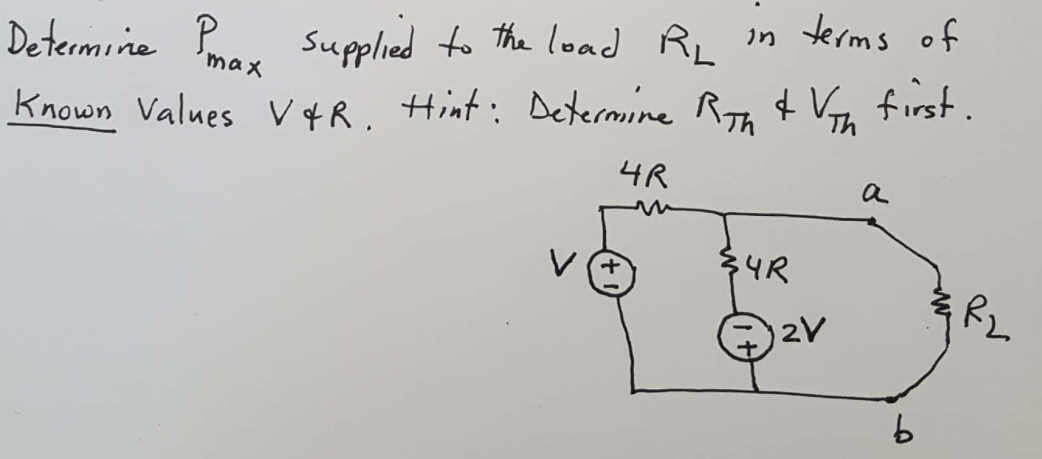 Determine Pmax supplied to the load RL in terms of
Known Values V & R. Hint: Determine RTh & VTh first.
4R
a
V
+
-
4R
-
+
2V
RL
b